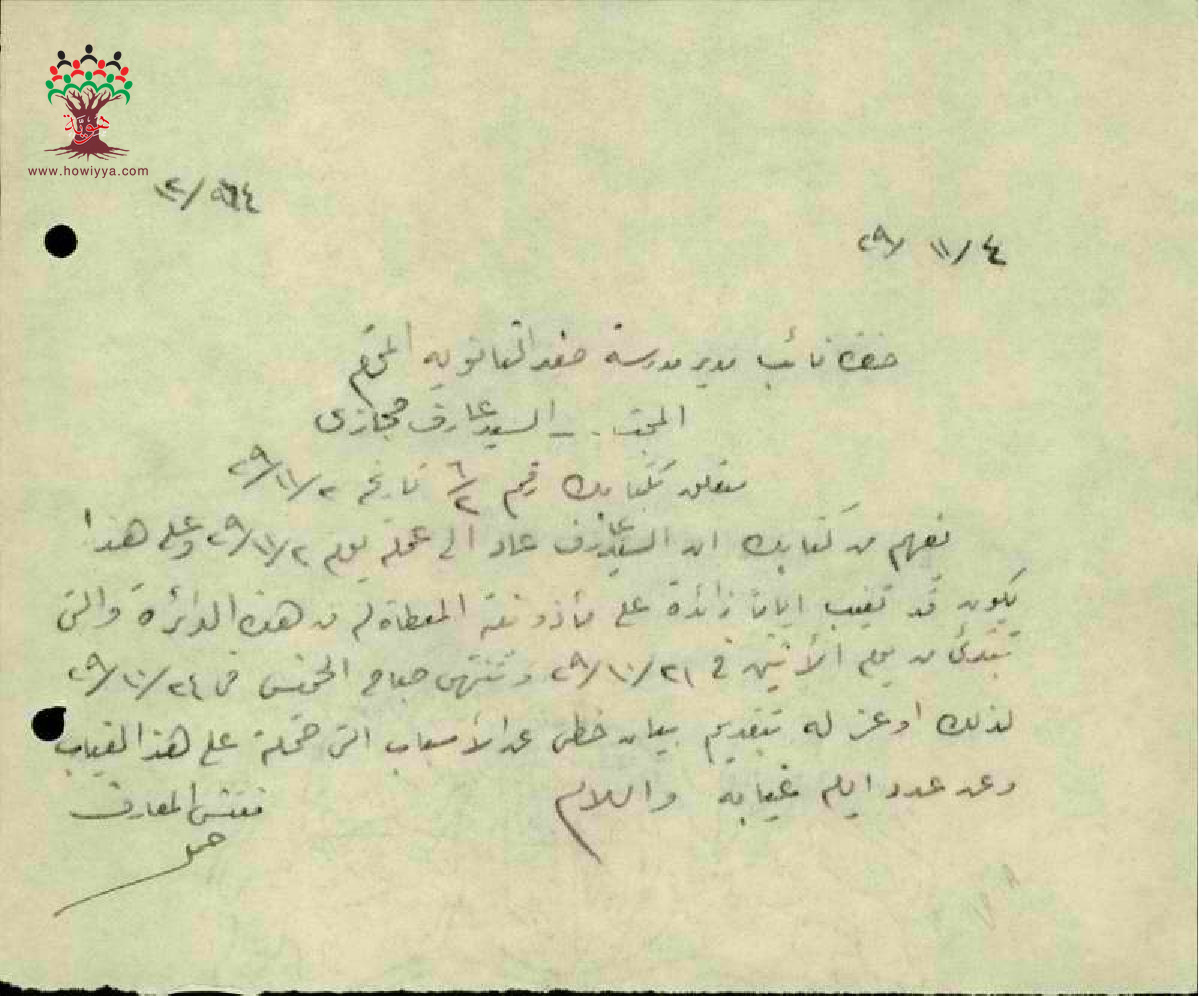 هوية
www.howiyya.com
٢/٥٦٤
٢٩/١١/٤
حضرة نائب مدير مدرسة صفد الثانوية المحترم
المبحث . - السيد عارف حجازي
متعلق بكتابك رقم ٦/٢ تاريخ ٢٩/١١/٢
نفهم من كتابك ان السيد عارف عاد الى عمله يوم ٢٩/١١/٢ وعلى هذا
يكون قد تغيب اياما زائدة على مأذونيته المعطاة له من هذه الدائرة والتي
تبتدئ من يوم الأثنين في ٢٩/١٠/٢١ وتنتهي صباح الخميس في ٢٩/١٠/٢٤
لذلك اوعز له بتقديم بيان خطي عن الأسباب التي حملته على هذا الغياب
وعن عدد ايام غيابه والسلام
مفتش المعارف